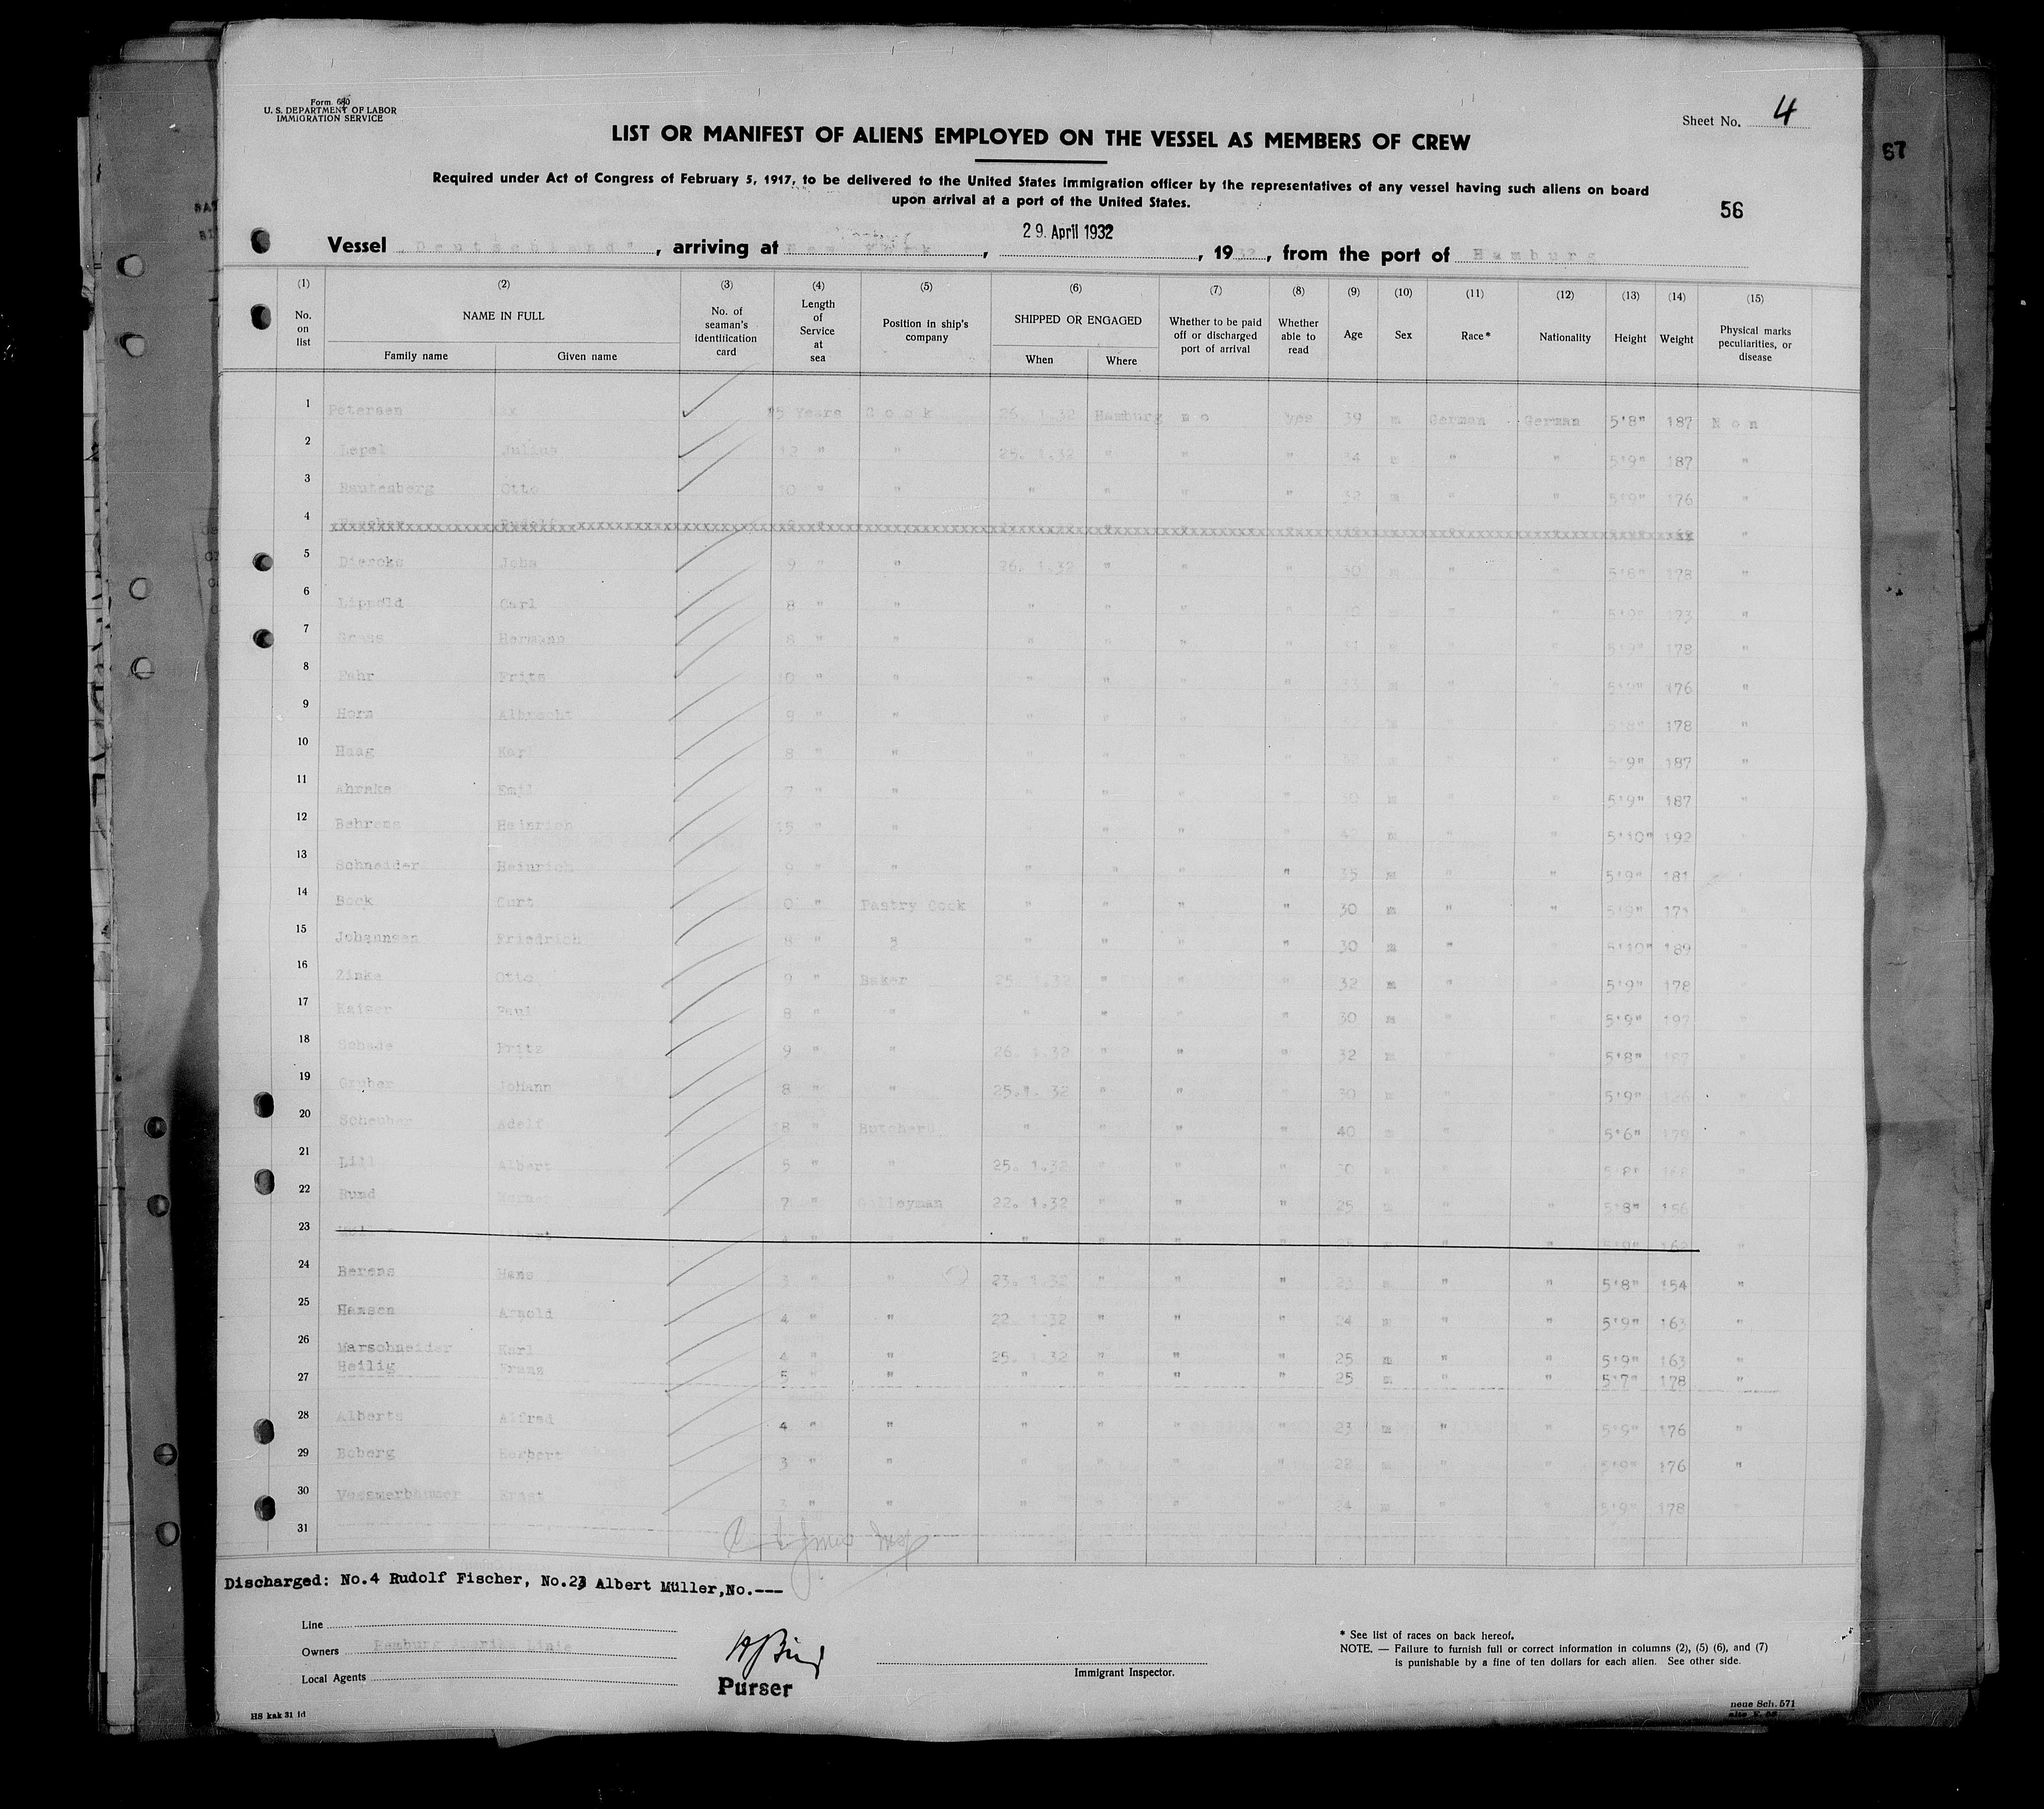 Form 680
U. S. DEPARTMENT OF LABOR
IMMIGRATION SERVICE
Sheet No. 4
LIST OR MANIFEST OF ALIENS EMPLOYED ON THE VESSEL AS MEMBERS OF CREW
67
Required under Act of Congress of February 5, 1917, to be delivered to the United States immigration officer by the representatives of any vessel having such aliens on board
upon arrival at a port of the United States.
56
Vessel "Deutschland", arriving at New York, 29. April 1932, 1932, from the port of Hamburg
(1) (2) (3) (4) (5) (6) (7) (8) (9) (10) (11) (12) (13) (14) (15)
No. on list NAME IN FULL Family name Given name No. of seaman's identification card Length of Service at sea Position in ship's company SHIPPED OR ENGAGED When Where Whether to be paid off or discharged port of arrival Whether able to read Age Sex Race* Nationality Height Weight Physical marks peculiarities, or disease
1 Petersen Max 15 Years Cook 26. 1.32 Hamburg no yes 39 m German German 5'8" 187 Non
2 Lepel Julius 12 " " 25. 1.32 " " " 34 m " " 5'9" 187 "
3 Rautenberg Otto 10 " " " " " " 32 m " " 5'9" 176 "
4 Rudolf "
5 Diercks Johs 9 " " 26. 1.32 " " " 30 m " " 5'8" 178 "
6 Lippold Carl 8 " " " " " " m " " 5'9" 173 "
7 Hermann 8 " " " " " " 31 m " " 5'9" 178 "
8 Fahr Fritz 10 " " " " " " 33 m " " 5'9" 176 "
9 Horn Albrecht 9 " " " " " " m " " 5'8" 178 "
10 Haag Karl 8 " " " " " " 32 m " " 5'9" 187 "
11 Ahrens Emil 7 " " " " " " 30 m " " 5'9" 187 "
12 Behrens Heinrich 15 " " " " " " 42 m " " 5'10" 192 "
13 Schneider Heinrich 9 " " " " " " 35 m " " 5'9" 181 "
14 Bock Curt 10 " Pastry Cook " " " " 30 m " " 5'9" 171 "
15 Johannsen Friedrich 8 " " " " " 30 m " " 5'10" 189 "
16 Zinke Otto 9 " Baker 25. 1.32 " " " 32 m " " 5'9" 178 "
17 Kaiser Paul 8 " " " " " " 30 m " " 5'9" 197 "
18 Schade Fritz 9 " " 26. 1.32 " " " 32 m " " 5'8" 187 "
19 Gruber Johann 8 " " 25.1. 32 " " " 30 m " " 5'9" "
20 Scheuber Adolf 18 " Butcher " " " " 40 m " " 5'6" 179 "
21 Lill Albert 5 " " 25. 1.32 " " " 30 m " " 5'8" "
22 Bund 7 " 22. 1.32 " " " 25 m " " 5'8" 156 "
23 4 " " " " " m " " 5'9"
24 Berens Hans 3 " " 23. 1.32 " " " 23 m " " 5'8" 154 "
25 Hansen Arnold 4 " " 22. 1.32 " " " 24 m " " 5'9" 163 "
26 Marschneider Karl 4 " " 25. 1.32 " " " 25 m " " 5'9" 163 "
27 Heilig Franz 5 " " " " " " 25 m " " 5'7" 178 "
28 Alberts Alfred 4 " " " " " " 23 m " " 5'9" 176 "
29 Boberg Herbert 3 " " " " " " 22 m " " 5'9" 176 "
30 Ernst 3 " " " " " " 24 m " " 5'9" 178
31
Discharged: No.4 Rudolf Fischer, No.23 Albert Müller,No.---
Line
Owners Hamburg Amerika Linie
Local Agents
Purser
Immigrant Inspector.
* See list of races on back hereof.
NOTE. — Failure to furnish full or correct information in columns (2), (5) (6), and (7)
is punishable by a fine of ten dollars for each alien. See other side.
HS kak 31 ld
neue Sch. 571
alte F. 58